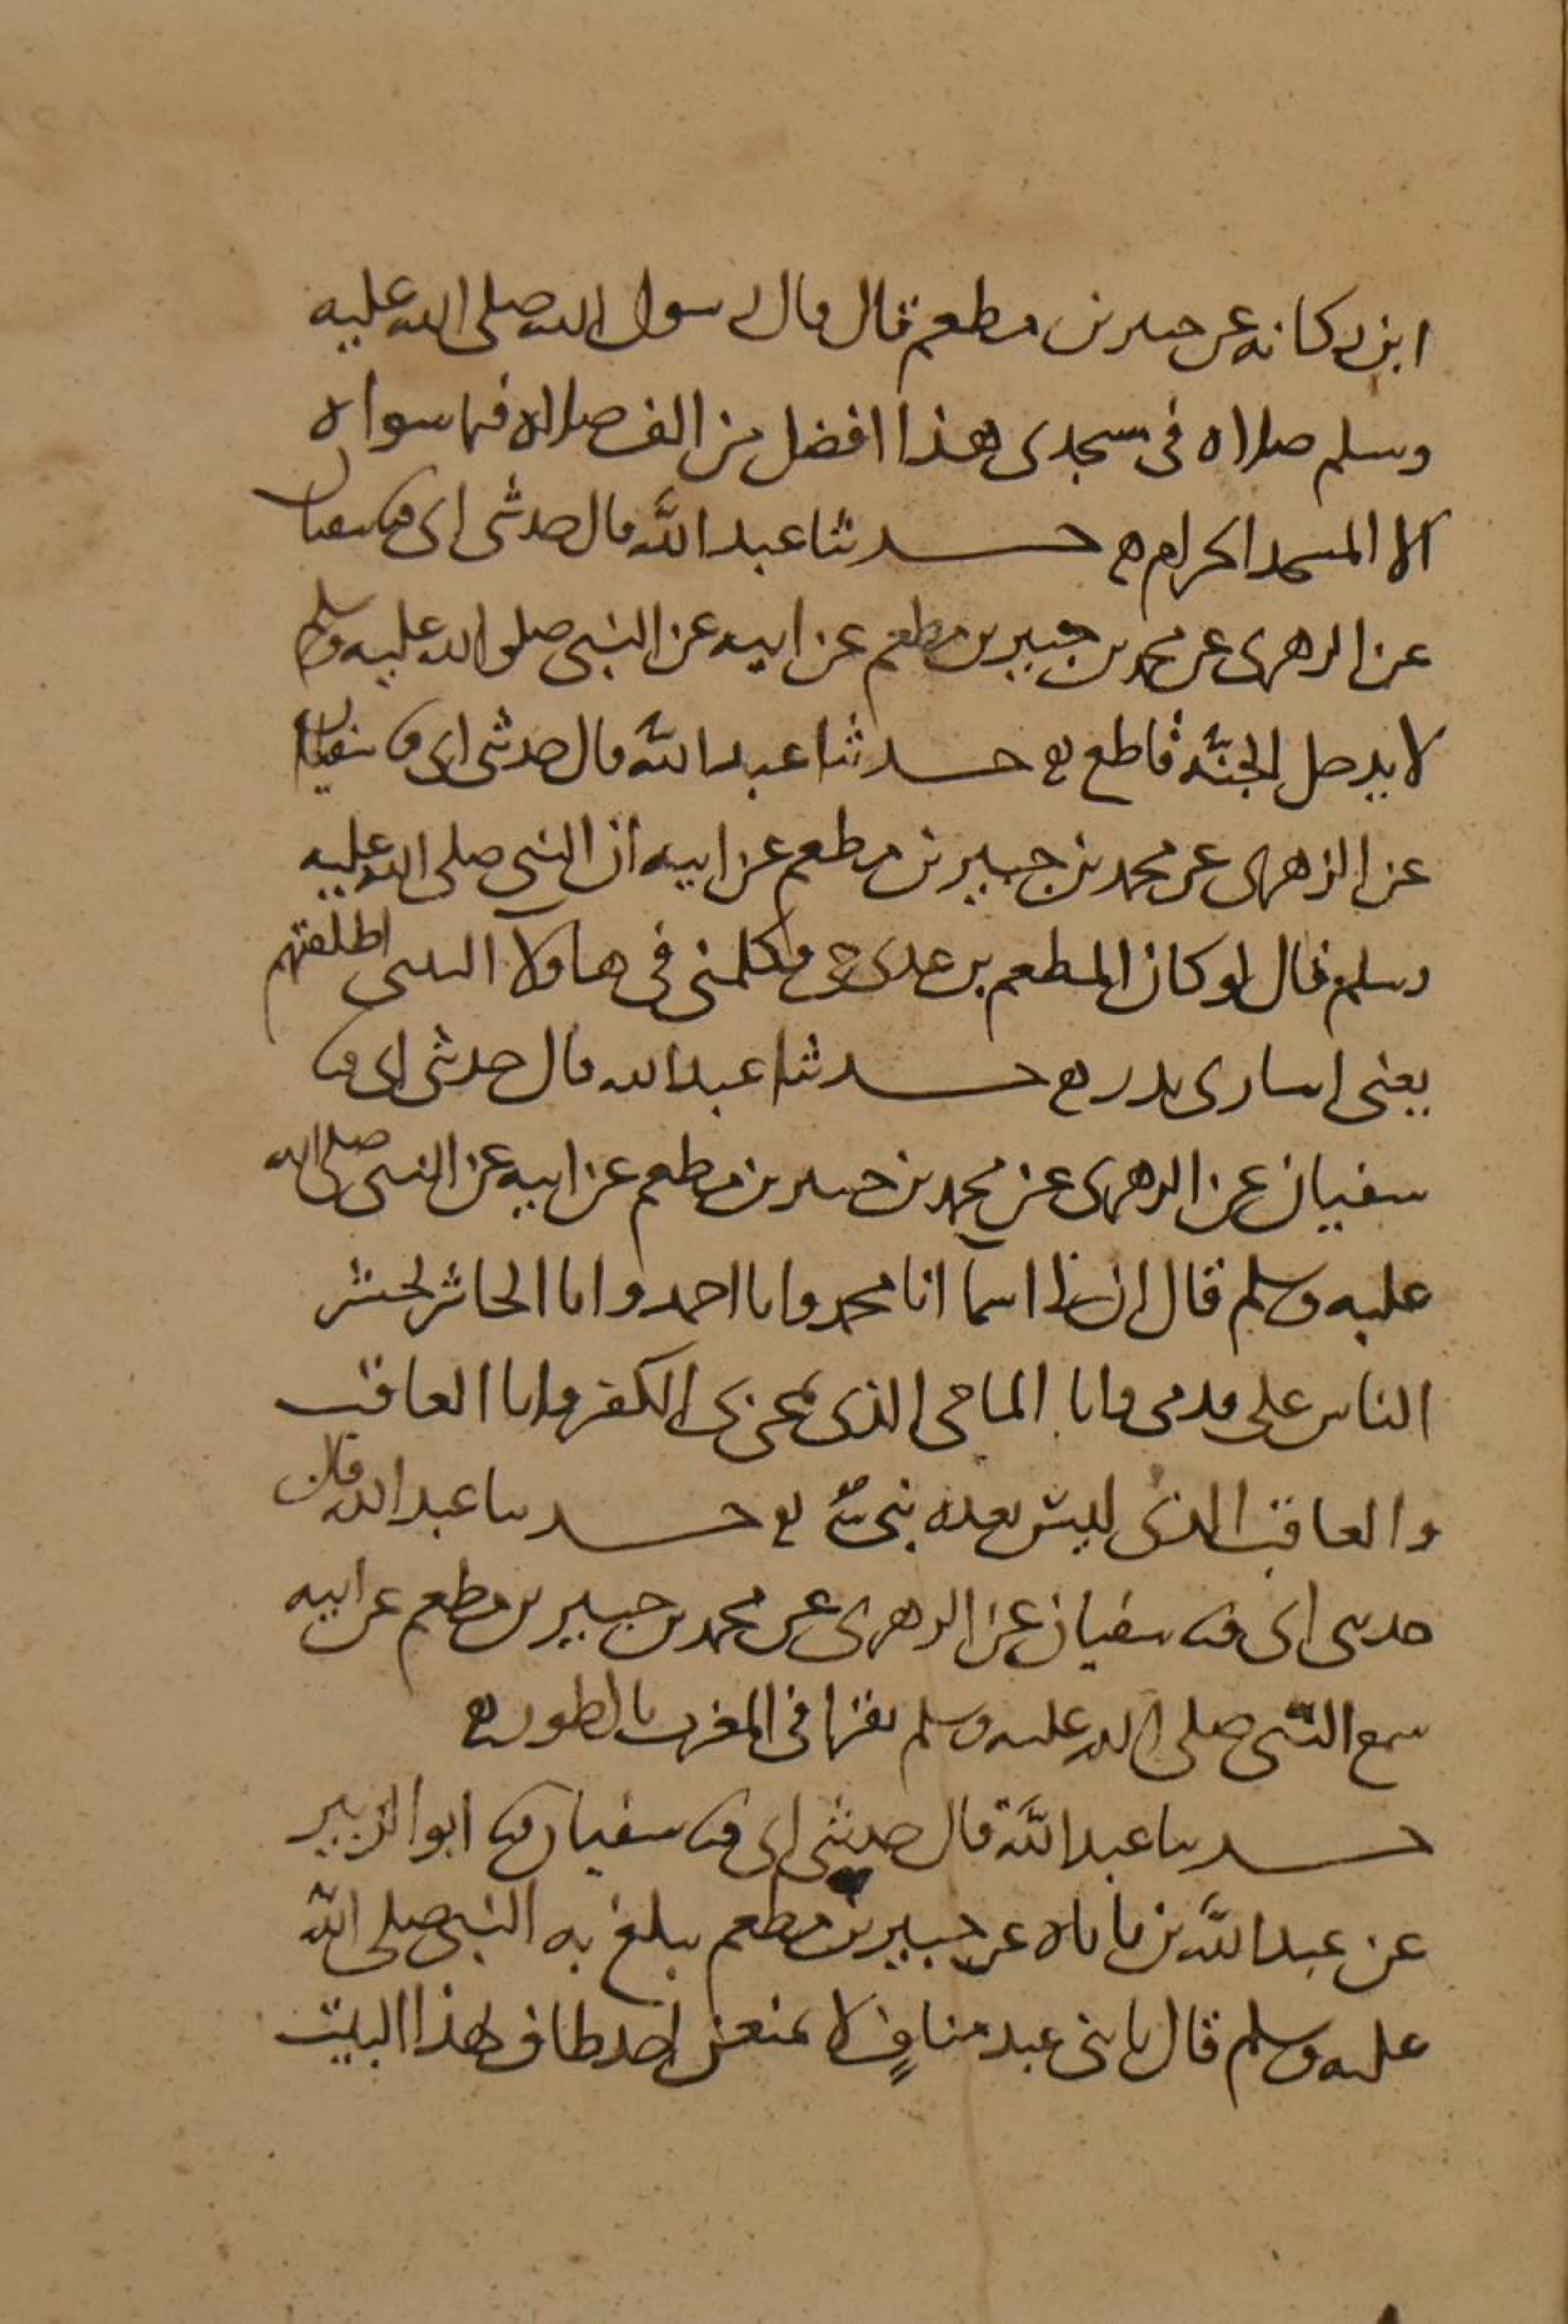 ابن ركانه عن جبير بن مطعم قال قال رسول الله صلى الله عليه
وسلم صلاه فى مسجدى هذا افضل من الف صلاه فيما سواه
الا المسجد الحرام ه حدثنا عبد الله قال حدثنى ابى ثنا سفيان
عن الزهرى عن محمد بن جبير بن مطعم عن ابيه عن النبى صلى الله عليه وسلم
لا يدخل الجنه قاطع ه حدثنا عبد الله قال حدثنى ابى ثنا سفيان
عن الزهرى عن محمد بن جبير بن مطعم عن ابيه ان النبى صلى الله عليه
وسلم قال لو كان المطعم بن عدى حى فكلمنى فى هاولا النتنى اطلقتهم
يعنى اسارى بدر ه حدثنا عبد الله قال حدثنى ابى ثنا
سفيان عن الزهرى عن محمد بن جبير بن مطعم عن ابيه عن النبى صلى الله
عليه وسلم قال ان لى اسمآ انا محمد وانا احمد وانا الحاشر يحشر
الناس على قدمى وانا الماحى الذى يمحى بى الكفر وانا العاقب
والعاقب الذى ليس بعده نبى ه حدثنا عبد الله قال
حدثنى ابى ثنا سفيان عن الزهرى عن محمد بن جبير بن مطعم عن ابيه
سمع النبى صلى الله عليه وسلم يقرا فى المغرب بالطور ه
حدثنا عبد الله قال حدثنى ابى ثنا سفيان ثنا ابو الزبير
عن عبد الله بن باباه عن جبير بن مطعم يبلغ به النبى صلى الله
عليه وسلم قال يا بنى عبد مناف لا تمنعن احد طاف بهذا البيت